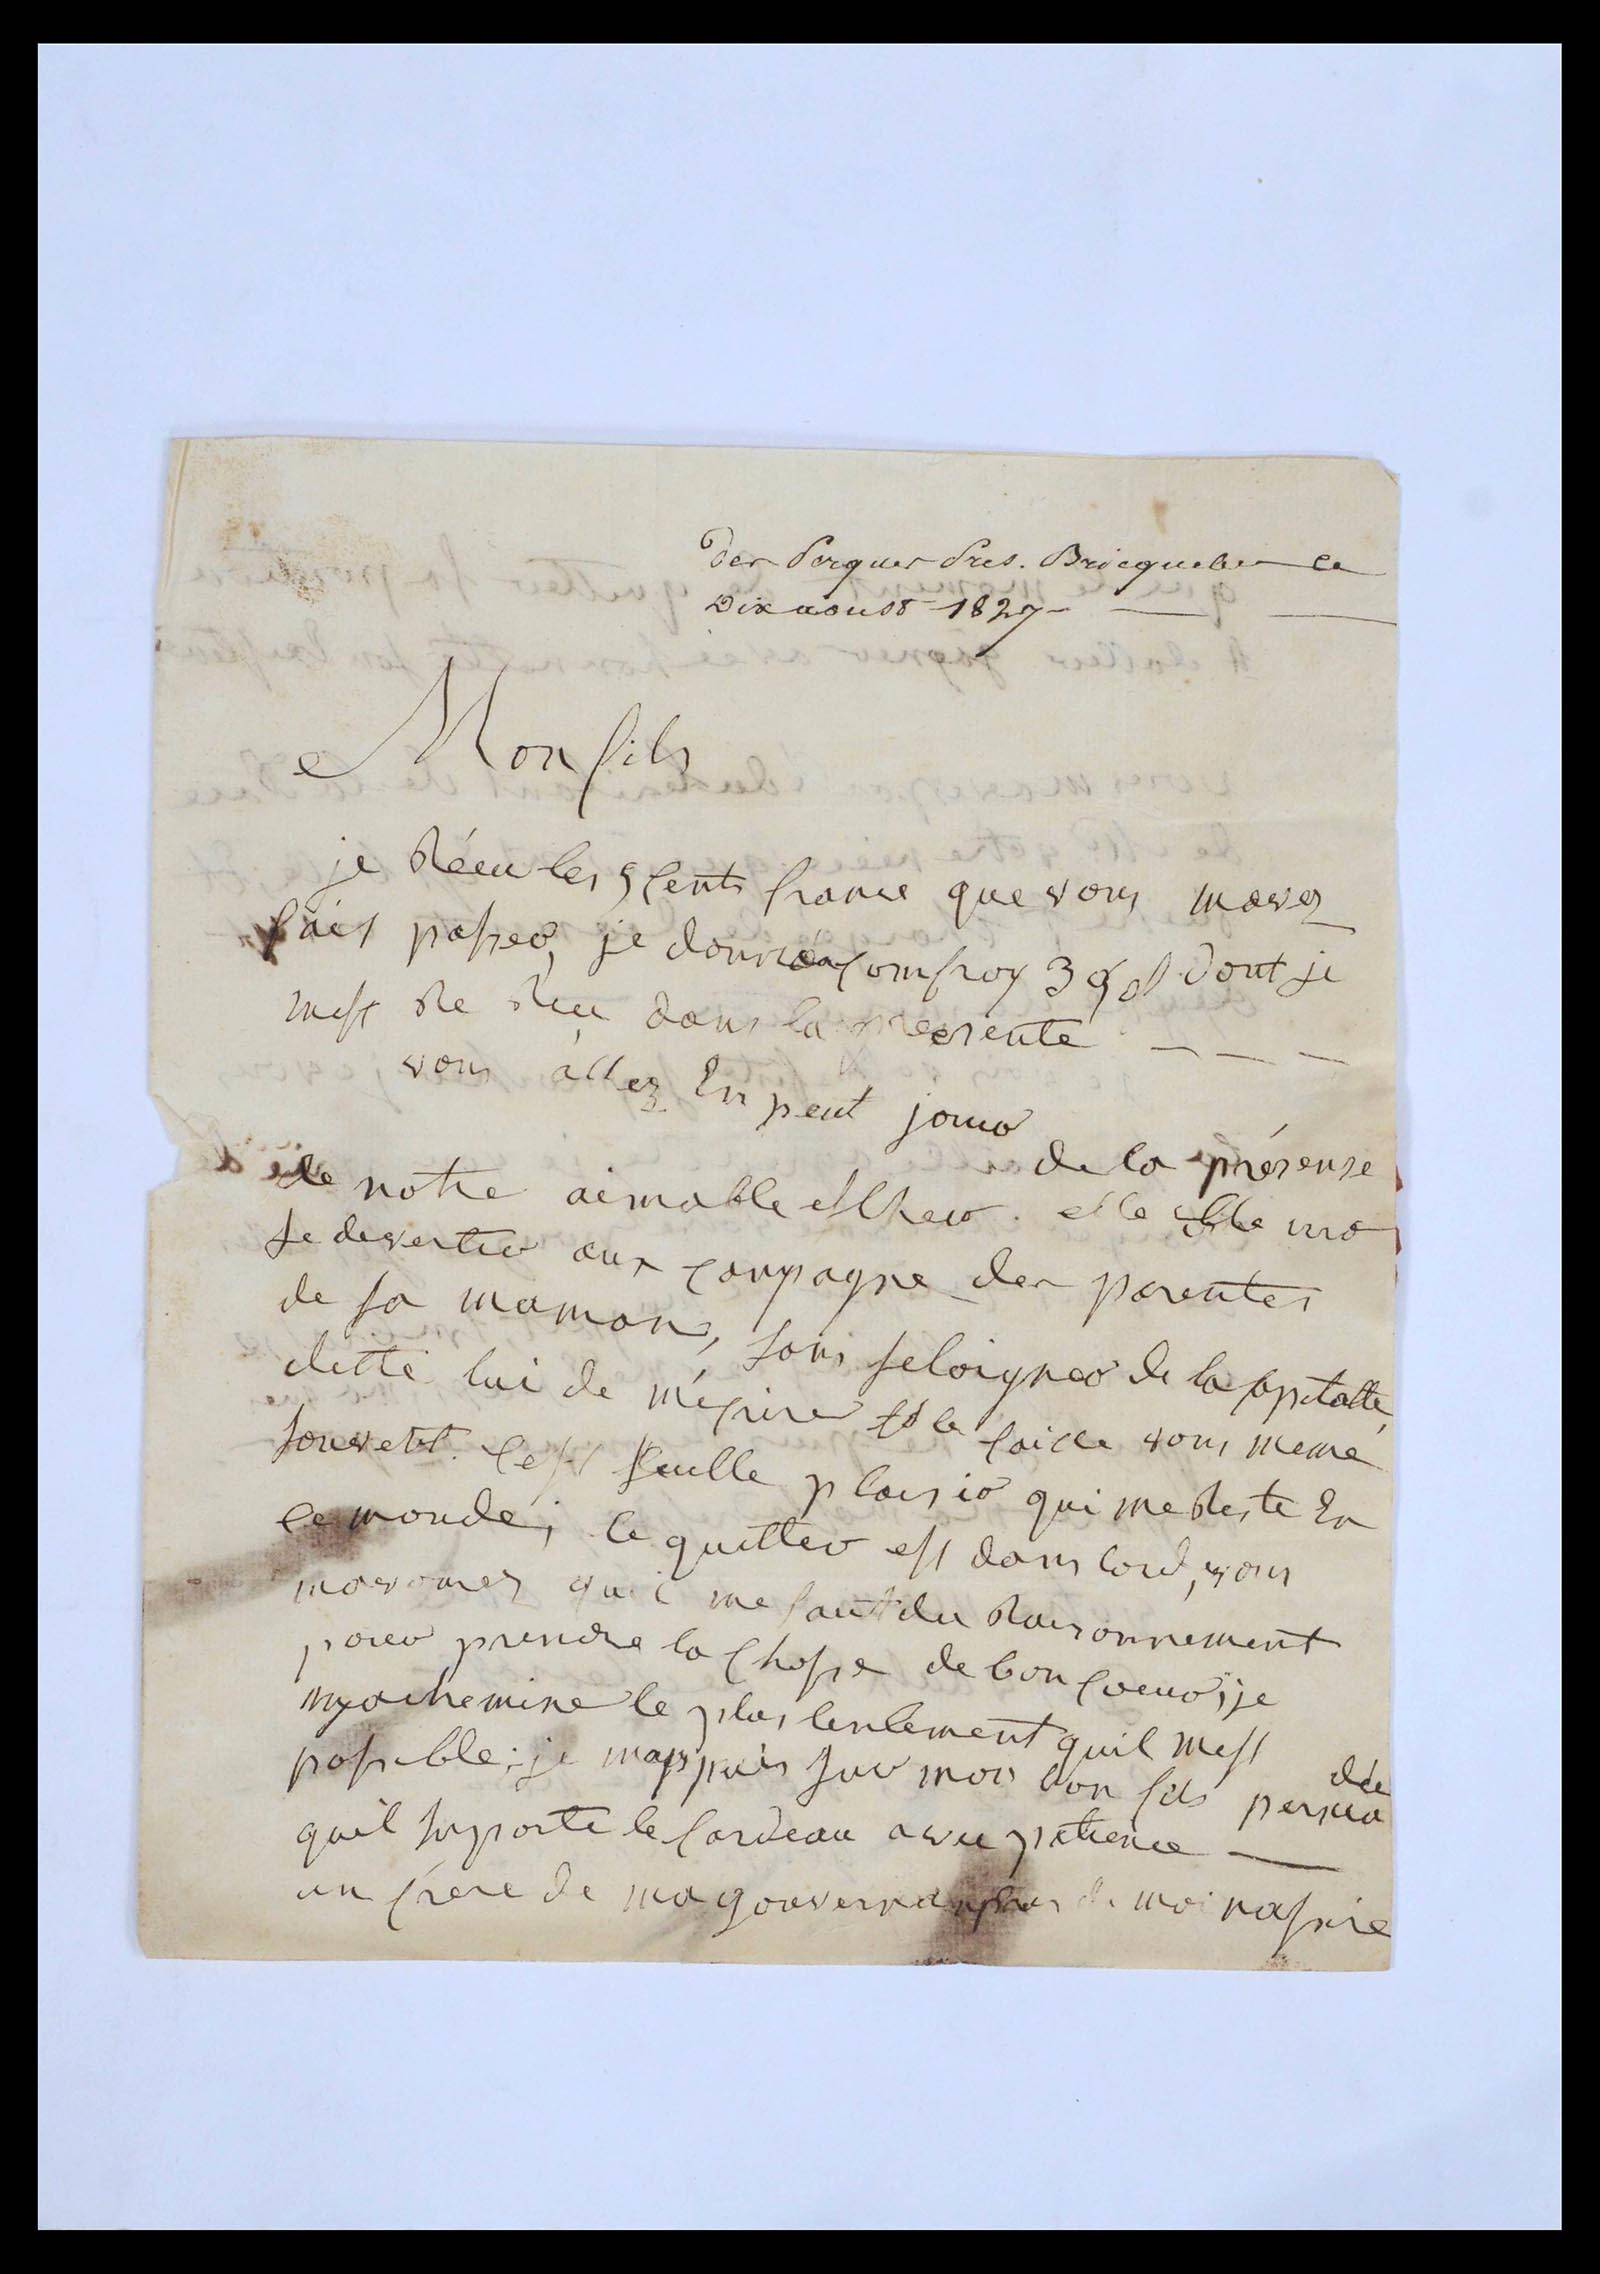 Des Perques Pres. Bricquebec ce
Dix aoust 1827
Mon fils
je Récu les 5 cents france que vous mavez
fais passer, je donné a Comfroy 39 dont je
mest Re Rcu dans la presente
vous allez En peut jouir
de la présense
de notre aimable esther. elle elle ira
se devertir aux Campagne des parentes
de sa maman, sans seloigner de la Capitalle
dette lui de m'écrire et le faitte vous meme
souvent. Cest seulle plaisir qui me Reste En
ce monde, le quitter est dans lord, vous
mavourez qui me faut du Raisonnement
pour prendre la Chosse de bon Coeur, je
myachemine le plus lentement quil mest
possible; je mappuis sur mon bon fils persuadée
quil suporte le fardeau avec patience
un frere de ma gouvernante pres de moi nassire